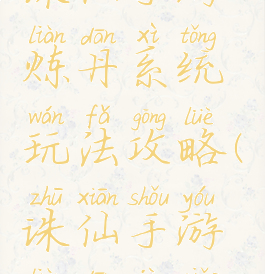 liàn dān xì tǒng
炼丹系统
wán fǎ gōng lüè
玩法攻略(
zhū xiān shǒu yóu
诛仙手游